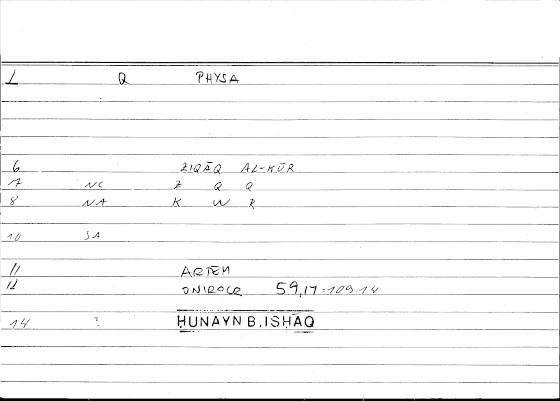 1 Q PHYSA
6 ZIQĀQ AL-KŪR
7 NC Z Q Q
8 NA K W R
10 SA
11 ARTEM
12 ONIROCR 59,17=109.14
14 ? HUNAYN B. ISHAQ